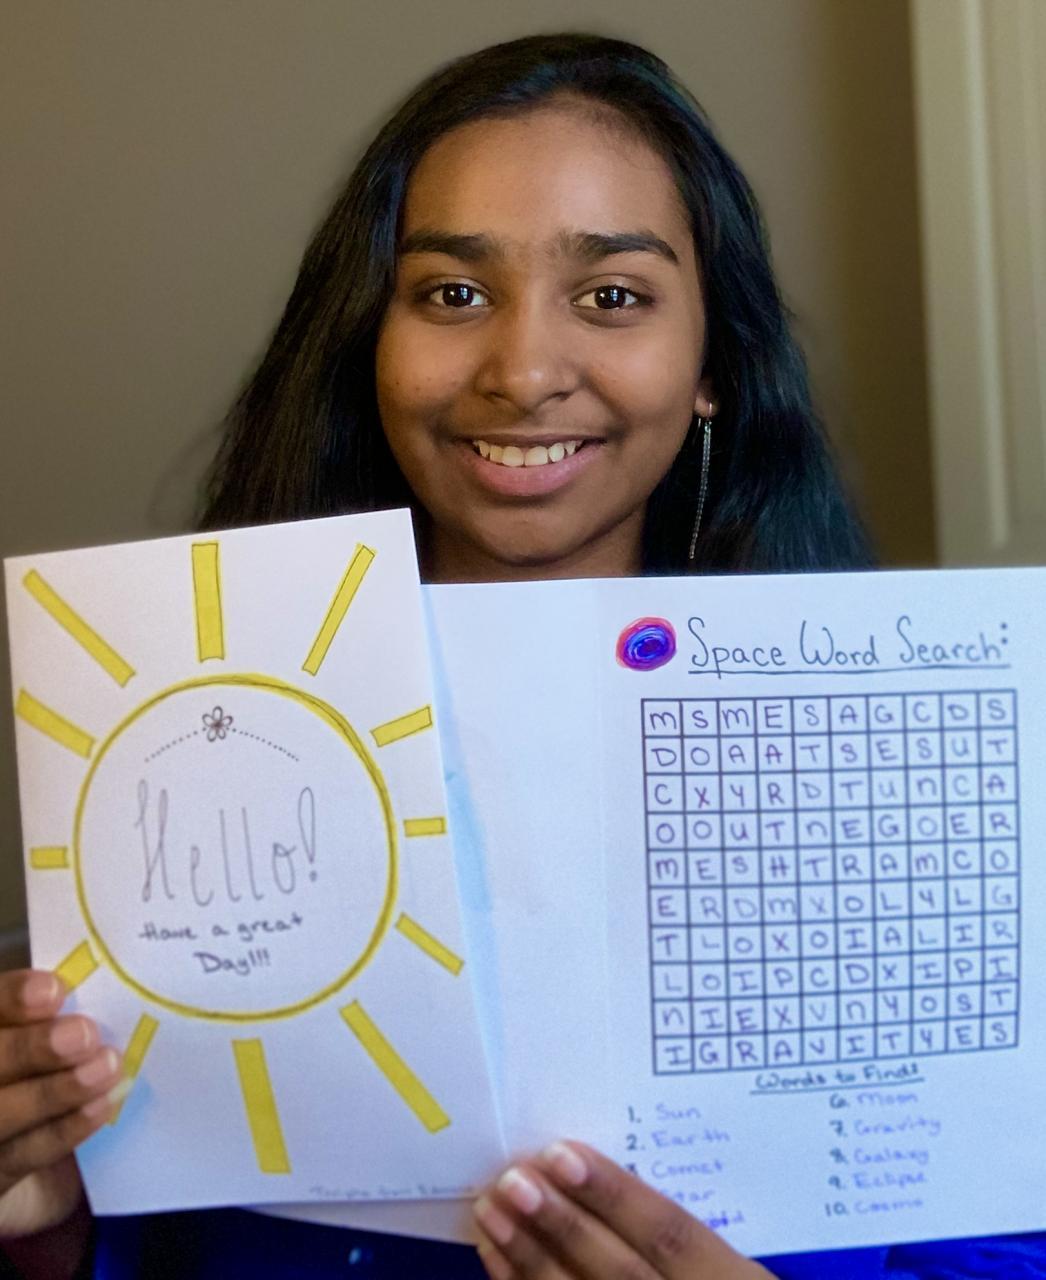 Hello!
Have a great
Day!!!
Space Word Search:
M S M E S A G C D S
D O A A T S E S U T
C X Y R D T U N C A
O O U T N E G O E R
M E S H T R A M C O
E R D M X O L Y L G
T L O X O I A L I R
L O I P C D X I P I
N I E X V N Y O S T
I G R A V I T Y E S
Words to Find:
1. Sun
2. Earth
3. Comet
Star
6. Moon
7. Gravity
8. Galaxy
9. Eclipse
10. Cosmo